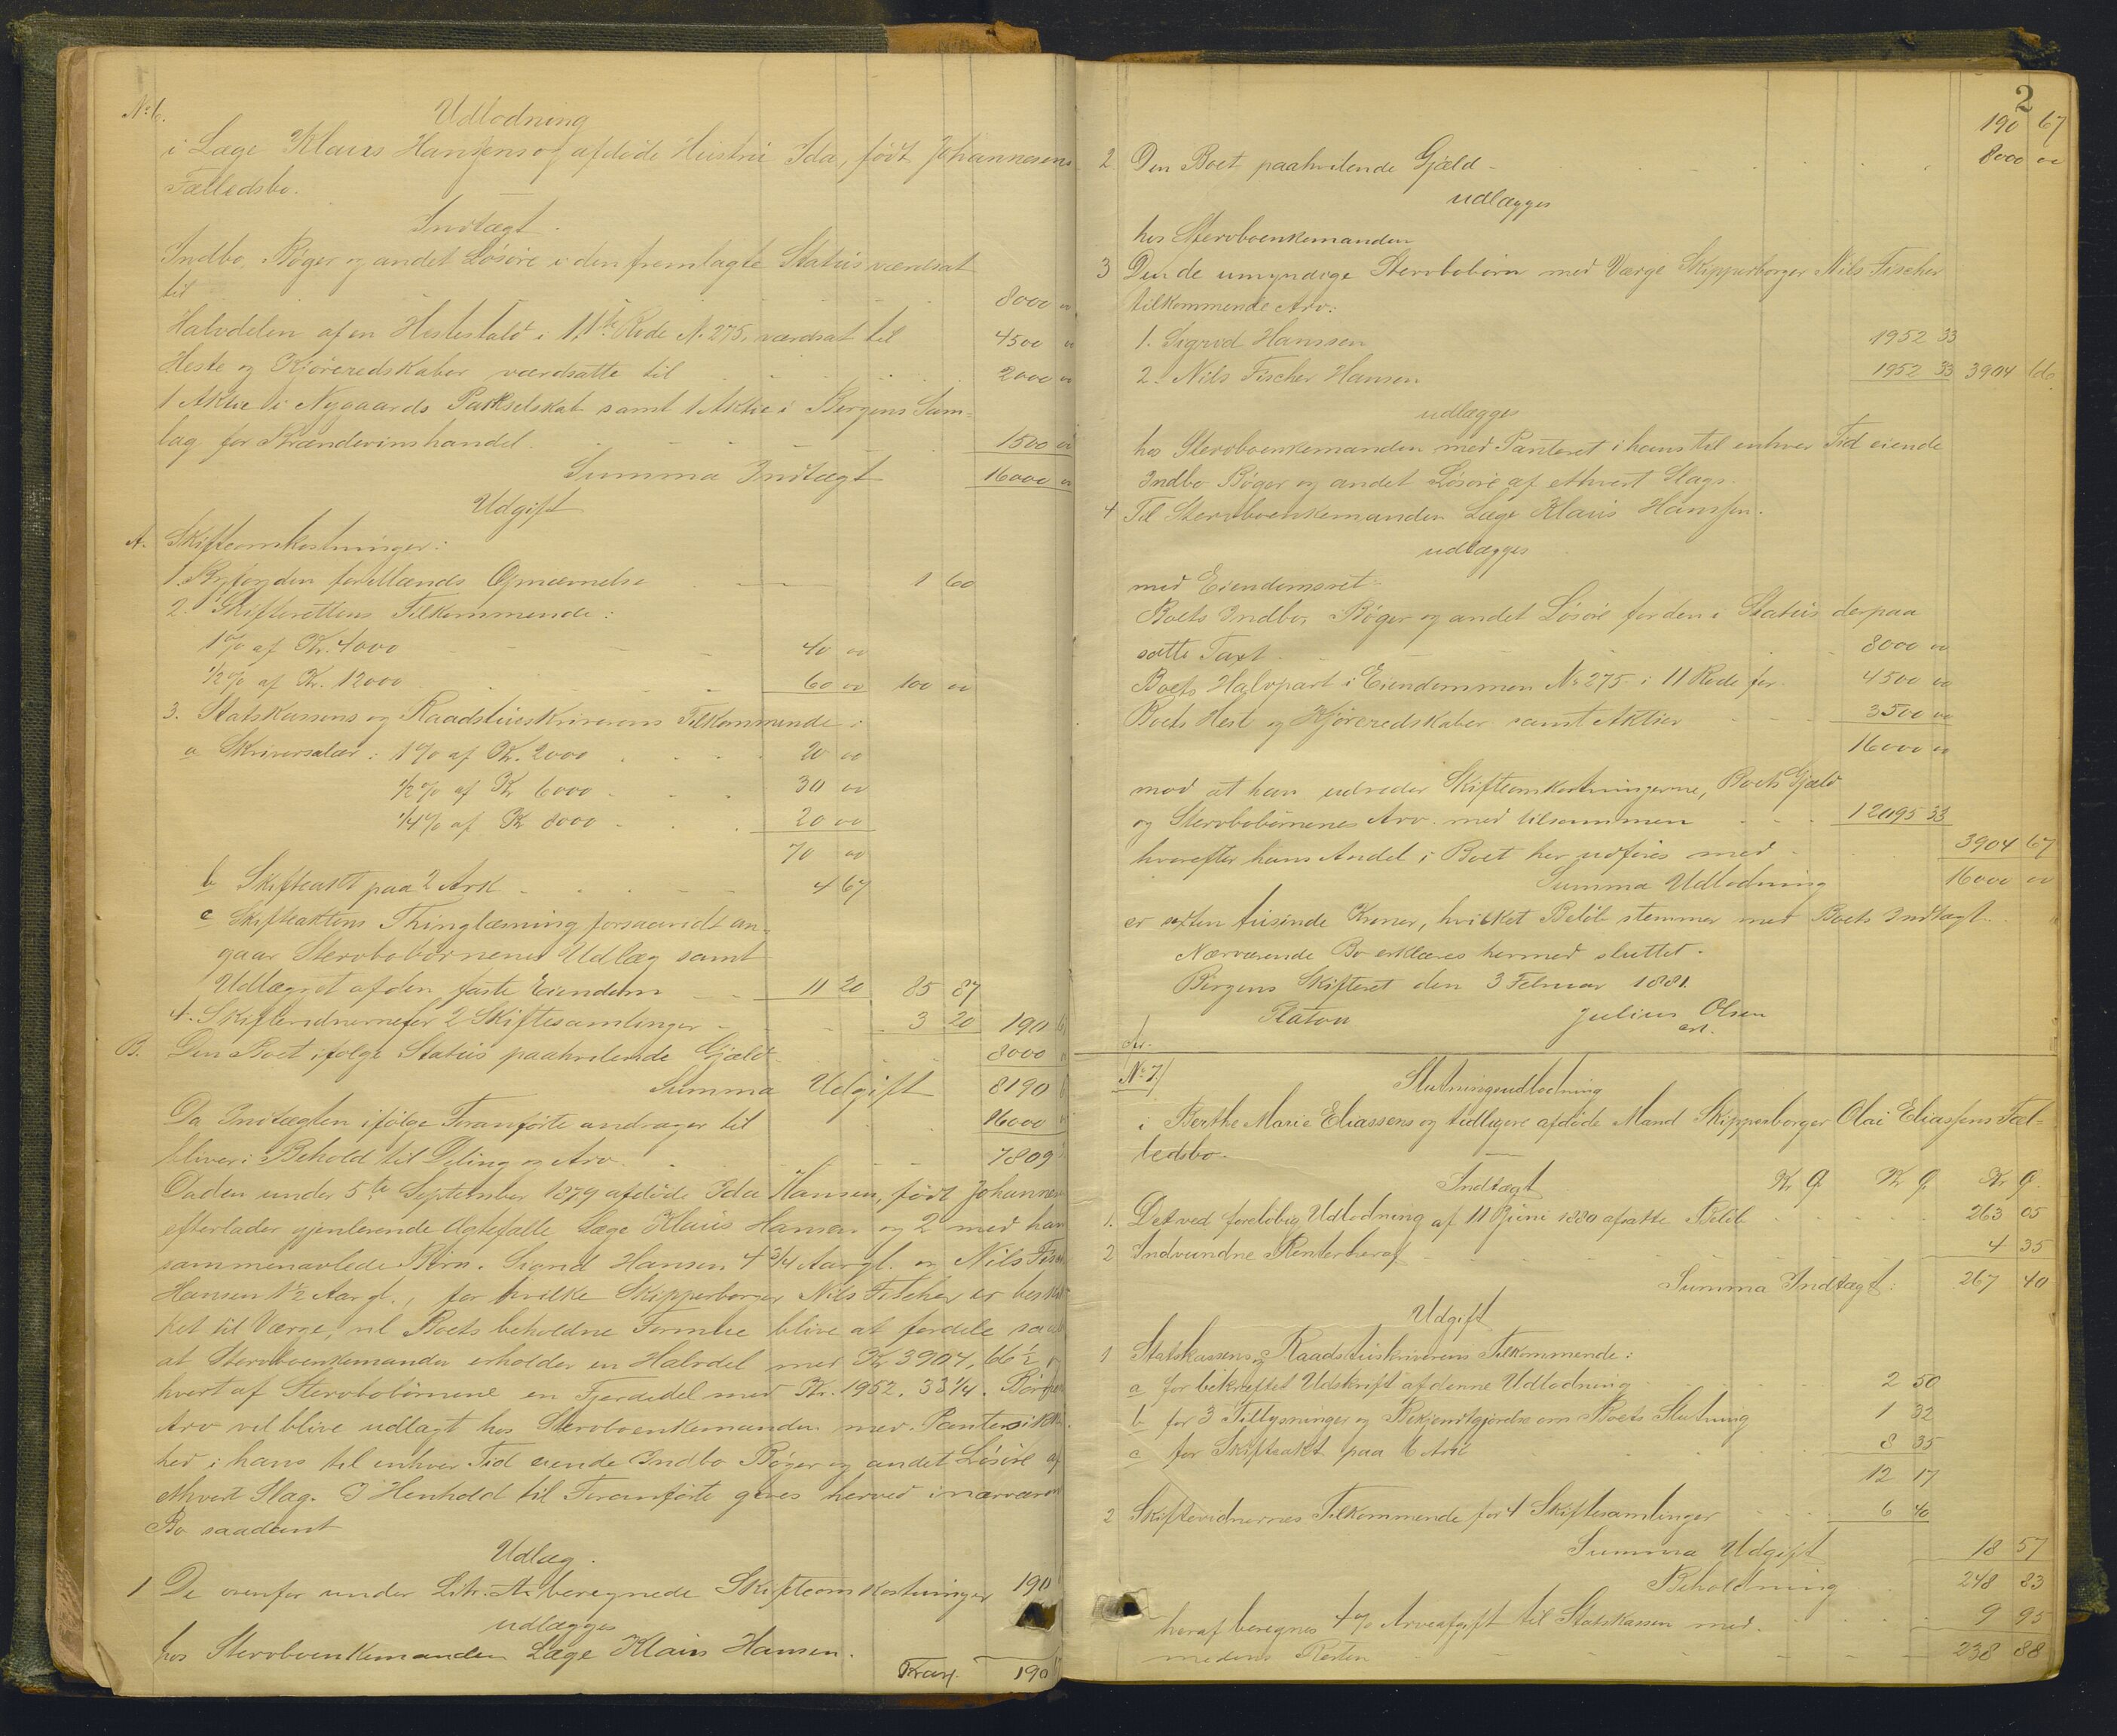 No 6. Udlodning
i Læge Klaus Hansens og afdøde Hustru Ida, født Johannesens
Fælledsbo.
Indtægt.
Indbo, Bøger og andet Løsøre i den fremlagte Status værdsat
til 8000 00
Halvdelen af en Hestestald i 11te Rode N. 275, værdsat til 4500 00
Heste og Kjøreredskaber værdsatte til 2000 00
1 Aktie i Nygaards Parkselskab samt 1 Aktie i Bergens Sam-
lag for Brændevinshandel. 1500 00
Summa Indtægt 16000 00
Udgift
A. Skifteomkostninger:
1. Byfogden Opnævnelse 1 60
2. Skifterettens Tilkommende:
1% af Kr. 4000 40 00
1/2% af Kr. 12000 60 00 100 00
3. Statskassens og Raadstueskriverens Tilkommende:
a Skriversalær: 1% af Kr. 2000 20 00
1/2% af Kr 6000 30 00
1/4% af Kr 8000 20 00
70 00
b Skifteakt paa 2 Ark 4 67
c Skifteaktens Thinglæsning forsaavidt an-
gaar Stervbobørnenes Udlæg samt
Udlægget af den faste Eiendom 11 20 85 87
4. Skiftevidnerne for 2 Skiftesamlinger 3 20 190
B. Den Boet ifølge Status paahvilende Gjæld 8000
Summa Udgift 8190
Da Indtægten ifølge Foranførte andrager til 16000
bliver i Behold til Deling og Arv. 7809
Da den under 5te September 1879 afdøde Ida Hansen, født Johannes
efterlader gjenlevende Ægtefælle Læge Klaus Hansen og 2 med ham
sammenavlede Børn. Sigrid Hansen 4 3/4 Aar gl. og Nils Fisch
Hansen 1 1/2 Aar gl., for hvilke Skipperborger Nils Fischer er beskik
ket til Værge, vil Boets beholdne Formue blive at fordele saaled
at Stervboenkemanden erholder en Halvdel med Kr 3904, 66 1/2 og
hvert af Stervbobørnene en Fjerdedel med Kr. 1952. 33 1/4. Børnenes
Arv vil blive udlagt hos Stervboenkemanden med Pantesikker
hed i hans til enhver Tid eiende Indbo Bøger og andet Løsøre af
ethvert Slag. I Henhold til Foranførte gjøres herved i nærværende
Bo saadant
Udlæg.
1 De ovenfor under Litr. A beregnede Skifteomkostninger 190
udlægges
hos Stervboenkemanden Læge Klaus Hansen.
Transp. 190
2
190 67
2 Den Boet paahvilende Gjæld 8000 00
udlægges
hos Stervboenkemanden
3 Den de umyndige Stervbobørn med Værge Skipperborger Nils Fischer
tilkommende Arv:
1. Sigrid Hanssen 1952 33
2. Nils Fischer Hansen 1952 33 3904 66
udlægges
hos Stervboenkemanden med Panteret i hans til enhver Tid eiende
Indbo Bøger og andet Løsøre af ethvert Slags.
4 Til Stervboenkemanden Læge Klaus Hanssen.
udlægges
med Eiendomsret
Boets Indbo, Bøger og andet Løsøre for den i Status derpaa
satte Taxt 8000 00
Boets Halvpart i Eiendommen No 275 i 11 Rode for 4500 00
Boets Hest og Kjøreredskaber samt Aktier 3500 00
16000 00
mod at han udreder Skifteomkostningerne, Boets Gjæld
og Stervbobørnenes Arv med tilsammen 12095 33
hvorefter hans Andel i Boet her udføres med 3904 67
Summa Udlodning 16000 00
er sexten tusinde Kroner, hvilket Beløb stemmer med Boets Indtægt.
Nærværende Bo erklæres hermed sluttet.
Bergens Skifteret den 3 Februar 1881.
Platou Julius Olsen
No 7/ Slutningsudlodning
i Berthe Marie Eliassens og tidligere afdøde Mand Skipperborger Olai Eliassens Fæl-
ledsbo.
Indtægt Kr Ø. Kr Ø. Kr Ø.
1. Det ved foreløbig Udlodning af 11 Juni 1880 afsatte Beløb 263 05
2 Indvundne Renter heraf 4 35
Summa Indtægt: 267 40
Udgift
1 Statskassens og Raadstueskriverens Tilkommende:
a for bekræftet Udskrift af denne Udlodning 2 50
b for 3 Tillysninger og Bekjendtgjørelse om Boets Slutning 1 32
c for Skifteakt paa 6 Ark 8 35
12 17
2 Skiftevidnernes Tilkommende for 4 Skiftesamlinger 6 40
Summa Udgift 18 57
Beholdning 248 83
heraf beregnes 4% Arveafgift til Statskassen med. 9 95
medens Resten 238 88